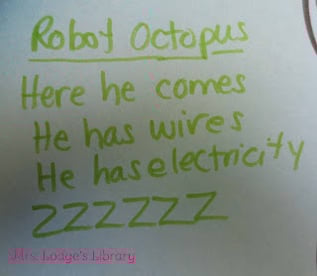 Robot Octopus
Here he comes
He has wires
He has electricity
ZZZZZZ
Mrs. Lodge's Library